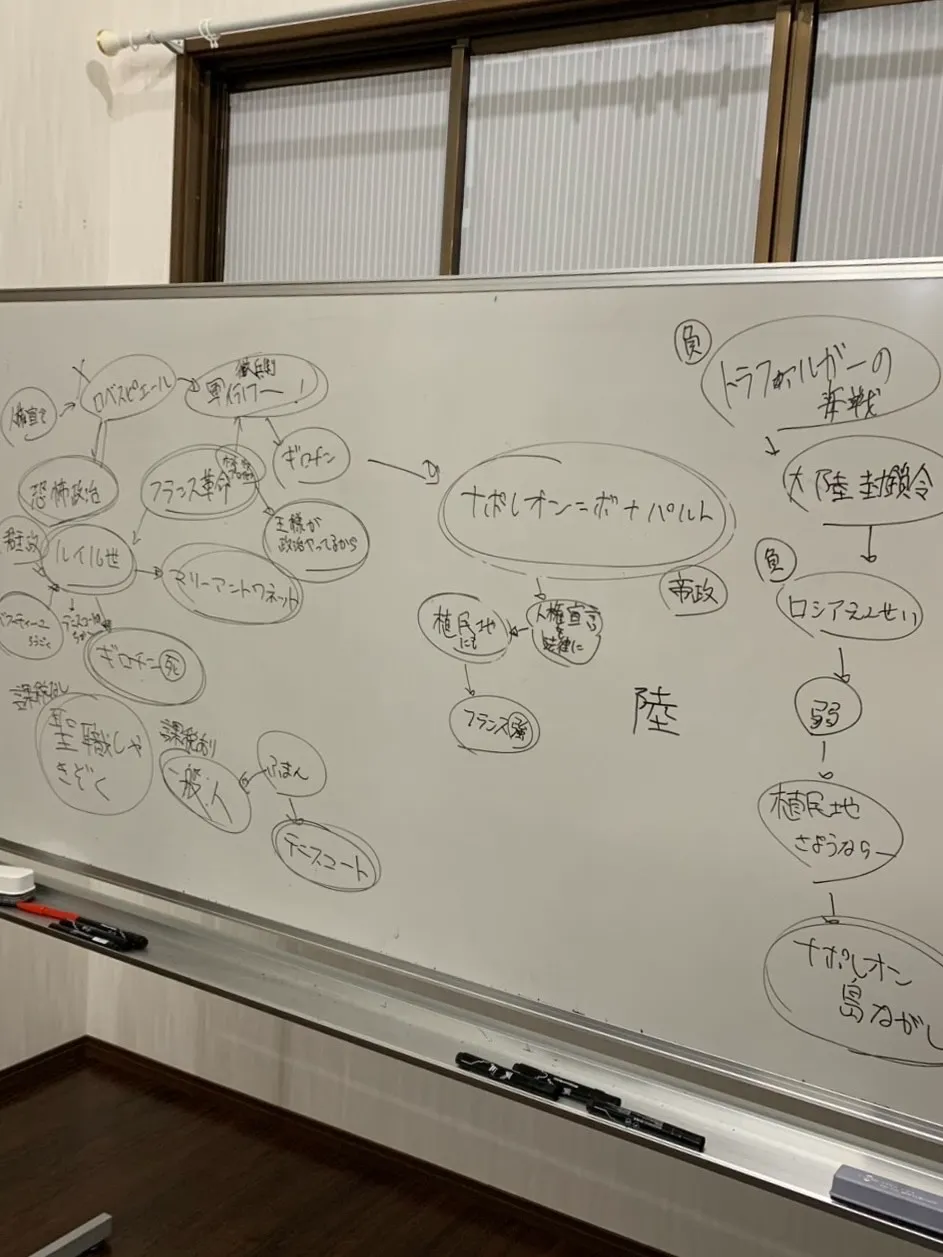 人権宣言
ロベスピエール
徴兵制
軍行くワー!
恐怖政治
フランス革命
ギロチン
王様が
政治やってるから
ルイ16世
マリーアントワネット
ギロチン死
課税なし
聖職しゃ
きぞく
課税あり
一般人
ふまん
テニスコート
ナポレオン=ボナパルト
帝政
人権宣言
を
法律に
植民地
にも
フランス強
陸
負
トラファルガーの
海戦
大陸封鎖令
負
ロシアえんせい
弱
植民地
さようならー
ナポレオン
島ながし